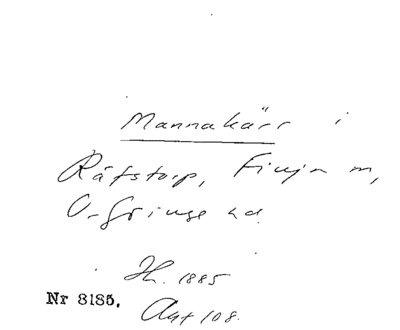 Mannakärr i
Räfstorp, Finja m,
V. Göinge hd.
Ih. 1885
Nr 8185. Akt 108.